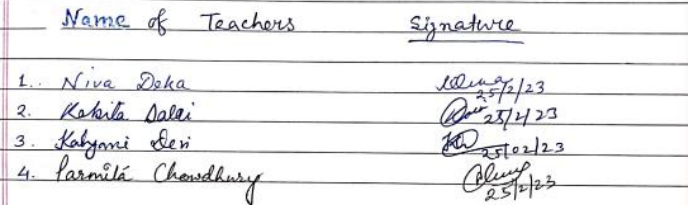 Name of Teachers Signature
1. Niva Deka 25/2/23
2. Kabita Dalai 25/2/23
3. Kalyani Devi 25/02/23
4. Parmita Chowdhury 25/2/23